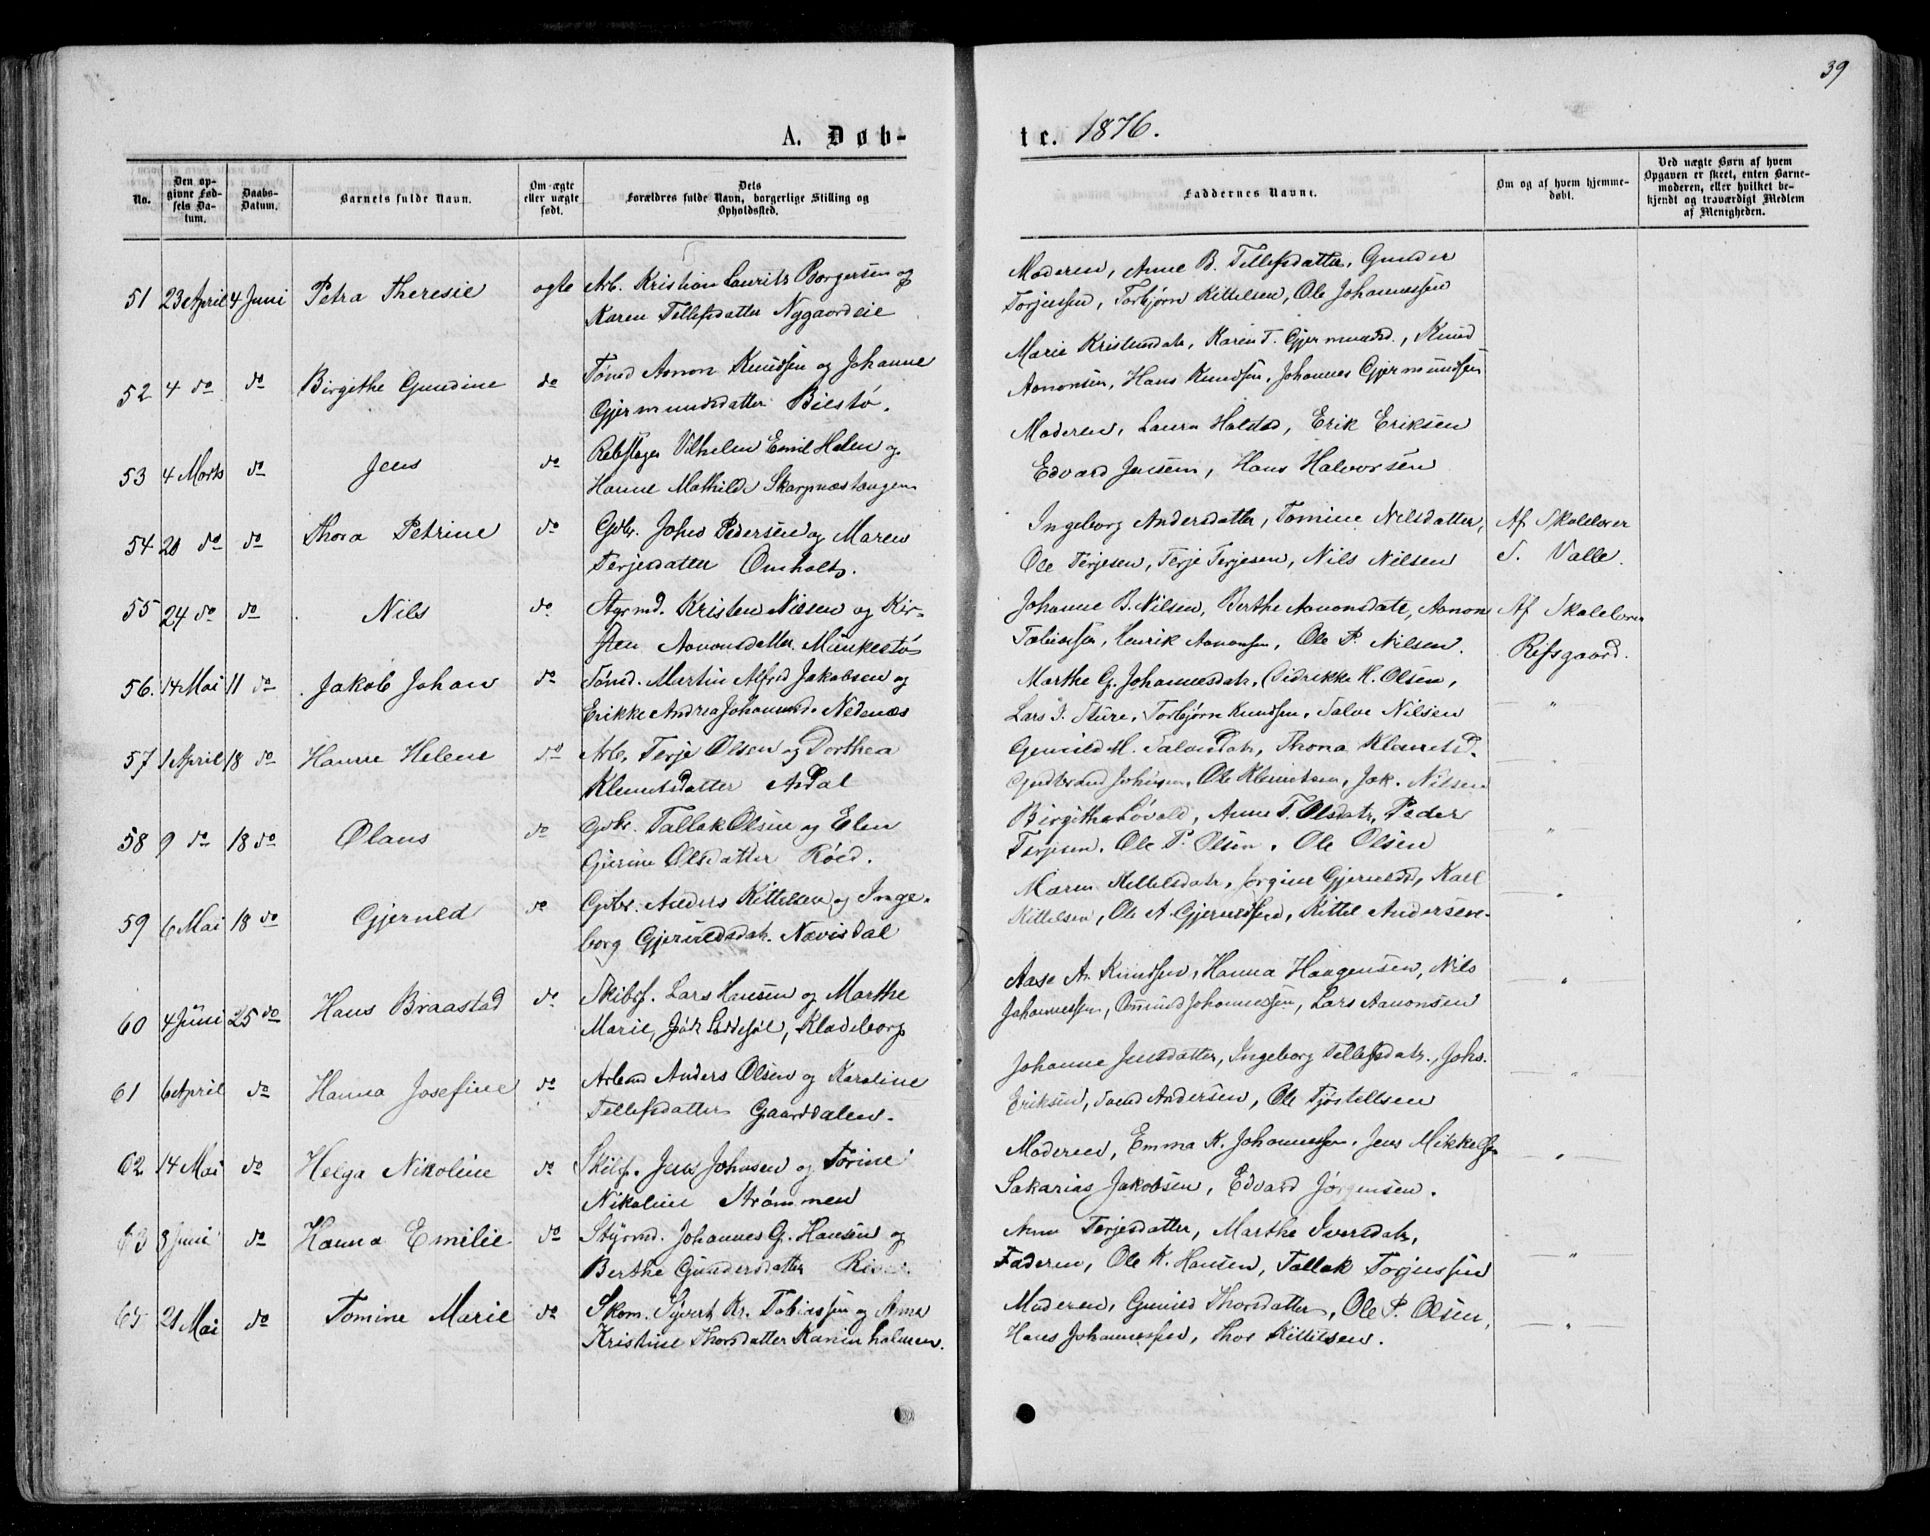 39
A. Døb-
te. 1876.
No.
Den op-
givne Fød-
sels Da-
tum.
Daabs-
Datum.
Barnets fulde Navn.
Om ægte
eller uægte
født.
Dets
Forældres fulde Navn, borgerlige Stilling og
Opholdssted.
Faddernes Navne.
Om og af hvem hjemme-
døbt.
Ved uægte Børn af hvem
Opgaven er skeet, enten Barne-
moderen, eller hvilket be-
kjendt og troværdigt Medlem
af Menigheden.
51 23 April 4 Juni Petra Theresie ægte Arb. Kristian Laurits Borgersen og
Karen Tellefsdatter Nygaardeie
Moderen, Anne B. Tellefsdatter, Gunder
Torjussen, Torbjørn Kittelsen, Ole Johannessen
52 4 do do Birgithe Gundine do Tømd Aanon Knudsen og Johanne
Gjermundsdatter Bilstø.
Marie Kristensdatr, Karen T. Gjermundsd., Knud
Aanonsen, Hans Knudsen, Johannes Gjermundsen
53 4 Marts do Jens do Rebslager Vilhelm Emil Holen og
Hanne Mathilde Skarpnæstangen
Moderen, Laura Halstad, Erik Eriksen
Edvard Jensen, Hans Halvorsen
54 20 do do Thora Petrine do Gdbr. Johs Pedersen og Maren
Terjesdatter Omholt.
Ingeborg Andersdatter, Tomine Nilsdatter,
Ole Terjesen, Terje Terjesen, Nils Nilsen
Af Skolelærer
T. Valle.
55 24 do do Nils do Styrmd. Kristen Nilsen og Kir-
sten Aanonsdatter Munkestø
Johanne B. Nilsen, Berthe Aanonsdatr, Aanon
Tobiassen, Henrik Aanonsen, Ole P. Nilsen.
Af Skolelærer
Refsgaard.
56. 14 Mai 11 do Jakob Johan do Tømd. Martin Alfred Jakobsen og
Erikke Andrea Johannesd. Nedenæs
Marthe G. Johannesdatr, Didrikke K. Olsen,
Lars J. Sture, Torbjørn Knudsen, Salve Nilsen
"
57 1 April 18 do Hanne Helene do Arb. Terje Olsen og Dorthea
Klemetsdatter Asdal
Gunild M. Salvesdatr, Thona Klemetsd.
Gudbrand Johnsen, Ole Klemetsen, Jak. Nilsen
"
58 9 do 18 do Olaus do Gdbr. Tallak Olsen og Elen
Gjerine Olsdatter Røed.
Birgithe Løvold, Anne T. Olsdatr, Peder
Terjesen, Ole P. Olsen, Ole Olsen
"
59 6 Mai 18 do Gjeruld do Gdbr. Anders Kittelsen og Inge-
borg Gjeruldsdatr. Nævisdal
Maren Kittelsdatr, Jørgine Gjeruldsd, Karl
Kittelsen, Ole A. Gjeruldsen, Kittel Andersen.
"
60 4 Juni 25 do Hans Braastad do Skibsf. Lars Hansen og Marthe
Marie, født Laddesøl, Kladeborg
Aase A. Knudsen, Hanna Haagensen, Nils
Johannessen, Omund Johannessen, Lars Aanonsen
"
61 6 April do Hanna Josefine do Arbmd Anders Olsen og Karoline
Tellefsdatter Gaarddalen.
Johanne Jensdatter, Ingeborg Tellefsdatr., Johs.
Eriksen, Svend Andersen, Ole Tjøstelsen
"
62 14 Mai do Helga Nikoline do Skibf. Jens Johnsen og Torine
Nikoline Strømmen
Moderen, Emma K. Johannessen, Jens Mikkelsen
Sakarias Jakobsen, Edvard Jørgensen.
"
63 3 Juni do Hanna Emilie do Styrmd. Johannes G. Hansen og
Berthe Gundersdatter
Anne Terjesdatter, Marthe Iversdatr,
Faderen, Ole K. Hansen, Tallak Torjussen
"
65 21 Mai do Tomine Marie do Skom. Syvert Kr. Tobiassen og Anna
Kristine Thorsdatter Kaninholmen.
Moderen, Gunild Thorsdatter, Ole P. Olsen,
Hans Johannessen, Thor Kittelsen.
"